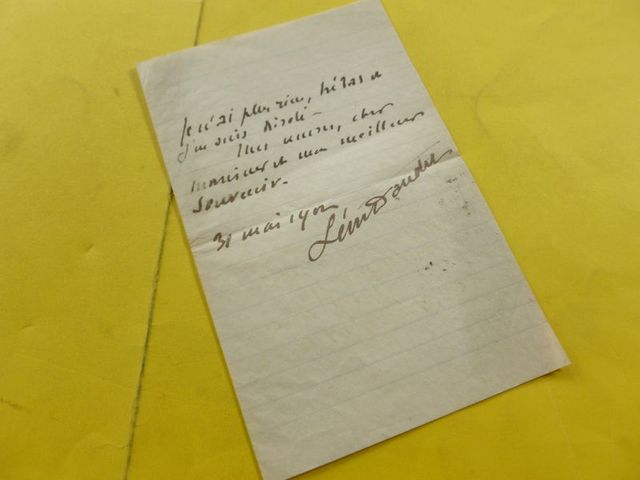 Je n'ai plus rien, hélas et
j'en suis désolé -
Mes excuses, cher
monsieur et mon meilleur
souvenir.
31 mai 190
Léon Daudet